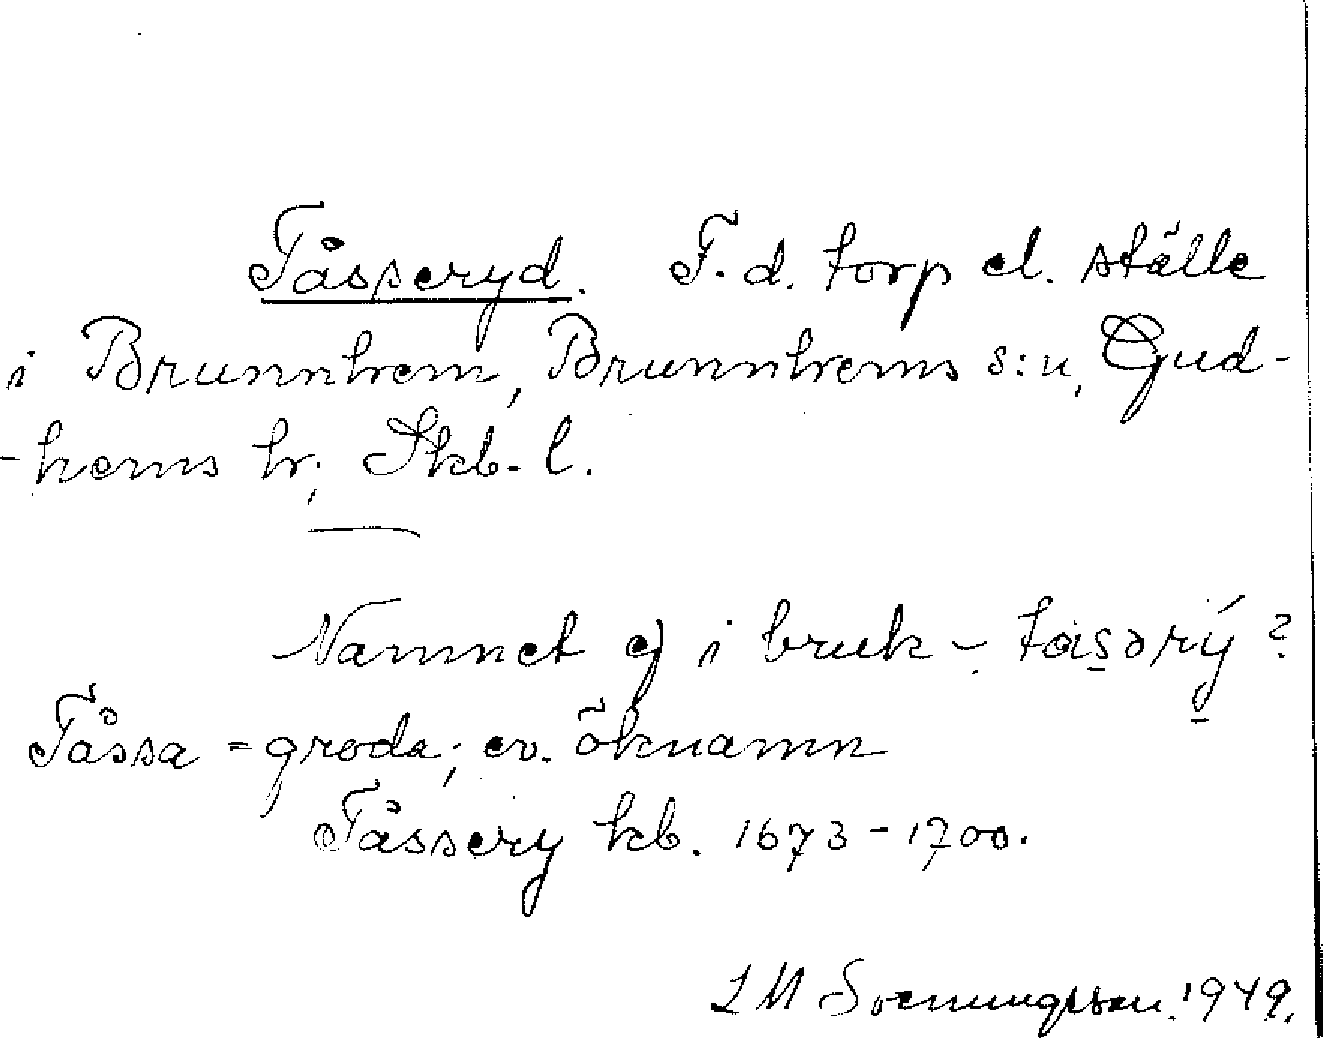 Tåsseryd. F. d. torp el. ställe
i Brunnhem, Brunnhems s:n, Gud-
-hems hr, Skb. l.
Namnet ej i bruk - tåsərý?
Tåssa = groda; ev. öknamn
Tåssery kb. 1673-1700.
L M Svenungsson. 1949.